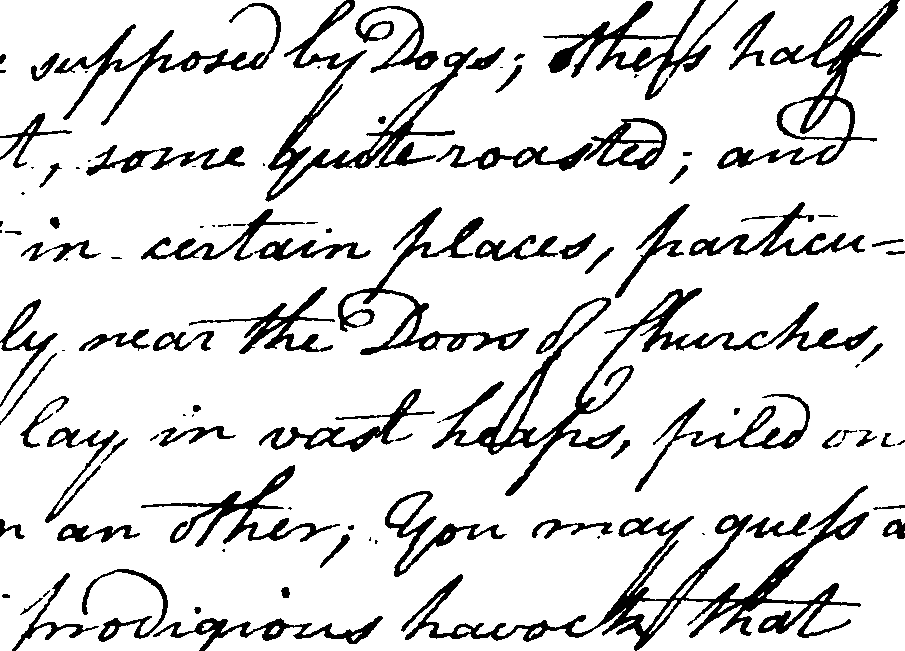 supposed by Dogs; others half
t, some quite roasted; and
in certain places, particu=
ly near the Doors of Churches,
lay in vast heaps, piled on
n an other; You may guess a
prodigious havock that